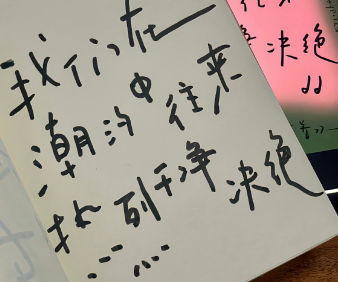 我们在
潮汐中往来
找到干净 决绝
……
决绝